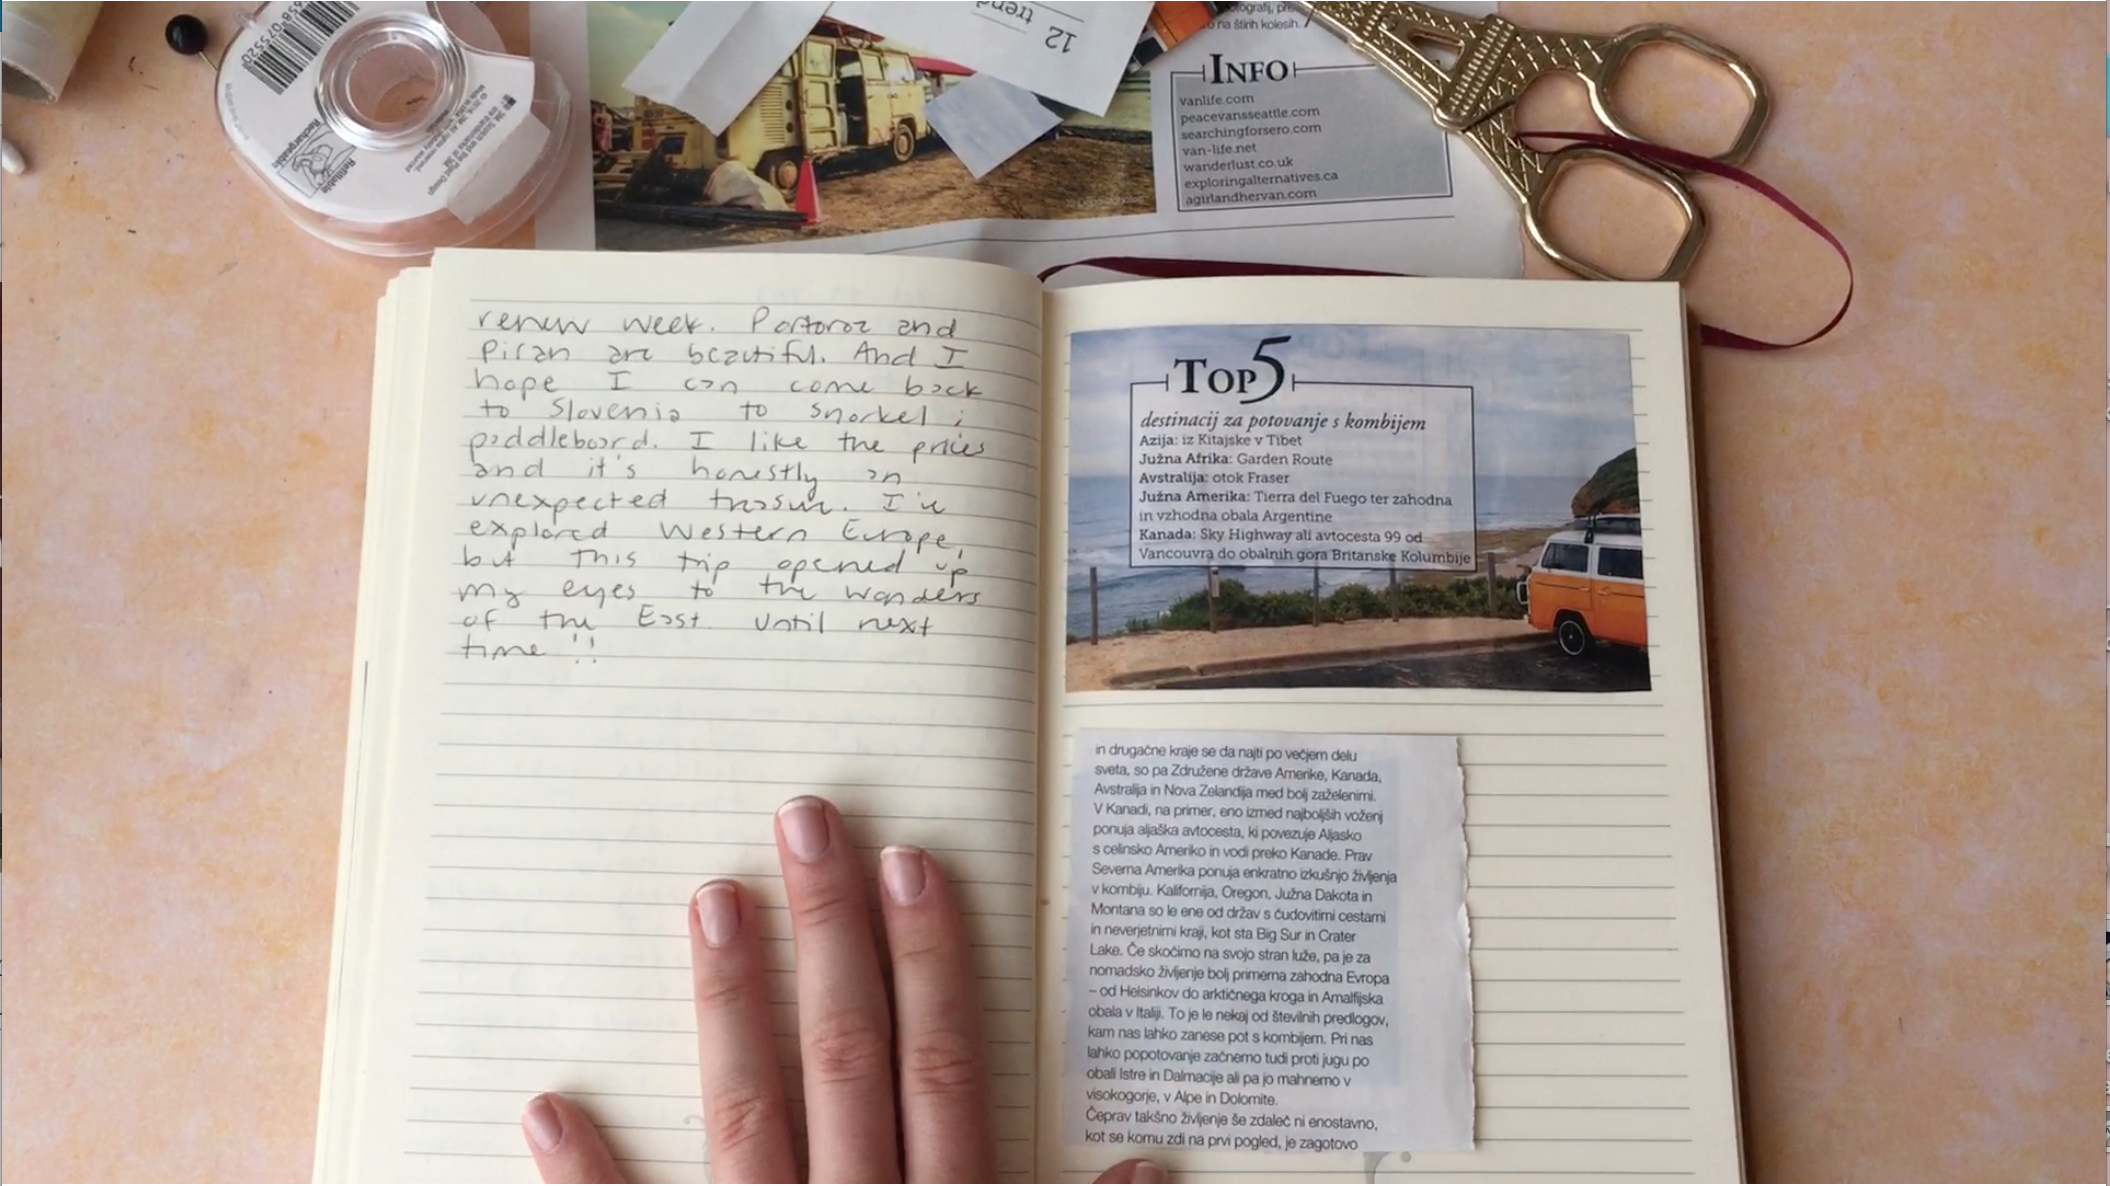 658-075520
Refillable
Rechargeable
12
trend
tografij, pre
o na štirih kolesih.
INFO
vanlife.com
peacevansseattle.com
searchingforsero.com
van-life.net
wanderlust.co.uk
exploringalternatives.ca
agirlandhervan.com
renew week. Portoroz and
Piran are beautiful. And I
hope I can come back
to Slovenia to snorkel ;
paddleboard. I like the prices
and it's honestly an
unexpected treasure. I've
explored Western Europe,
but this trip opened up
my eyes to the wonders
of the East. Until next
time !!
TOP 5
destinacij za potovanje s kombijem
Azija: iz Kitajske v Tibet
Južna Afrika: Garden Route
Avstralija: otok Fraser
Južna Amerika: Tierra del Fuego ter zahodna
in vzhodna obala Argentine
Kanada: Sky Highway ali avtocesta 99 od
Vancouvra do obalnih gora Britanske Kolumbije
in drugačne kraje se da najti po večjem delu
sveta, so pa Združene države Amerike, Kanada,
Avstralija in Nova Zelandija med bolj zaželenimi.
V Kanadi, na primer, eno izmed najboljših voženj
ponuja aljaška avtocesta, ki povezuje Aljasko
s celinsko Ameriko in vodi preko Kanade. Prav
Severna Amerika ponuja enkratno izkušnjo življenja
v kombiju. Kalifornija, Oregon, Južna Dakota in
Montana so le ene od držav s čudovitimi cestami
in neverjetnimi kraji, kot sta Big Sur in Crater
Lake. Če skočimo na svojo stran luže, pa je za
nomadsko življenje bolj primerna zahodna Evropa
– od Helsinkov do arktičnega kroga in Amalfijska
obala v Italiji. To je le nekaj od številnih predlogov,
kam nas lahko zanese pot s kombijem. Pri nas
lahko popotovanje začnemo tudi proti jugu po
obali Istre in Dalmacije ali pa jo mahnemo v
visokogorje, v Alpe in Dolomite.
Čeprav takšno življenje še zdaleč ni enostavno,
kot se komu zdi na prvi pogled, je zagotovo